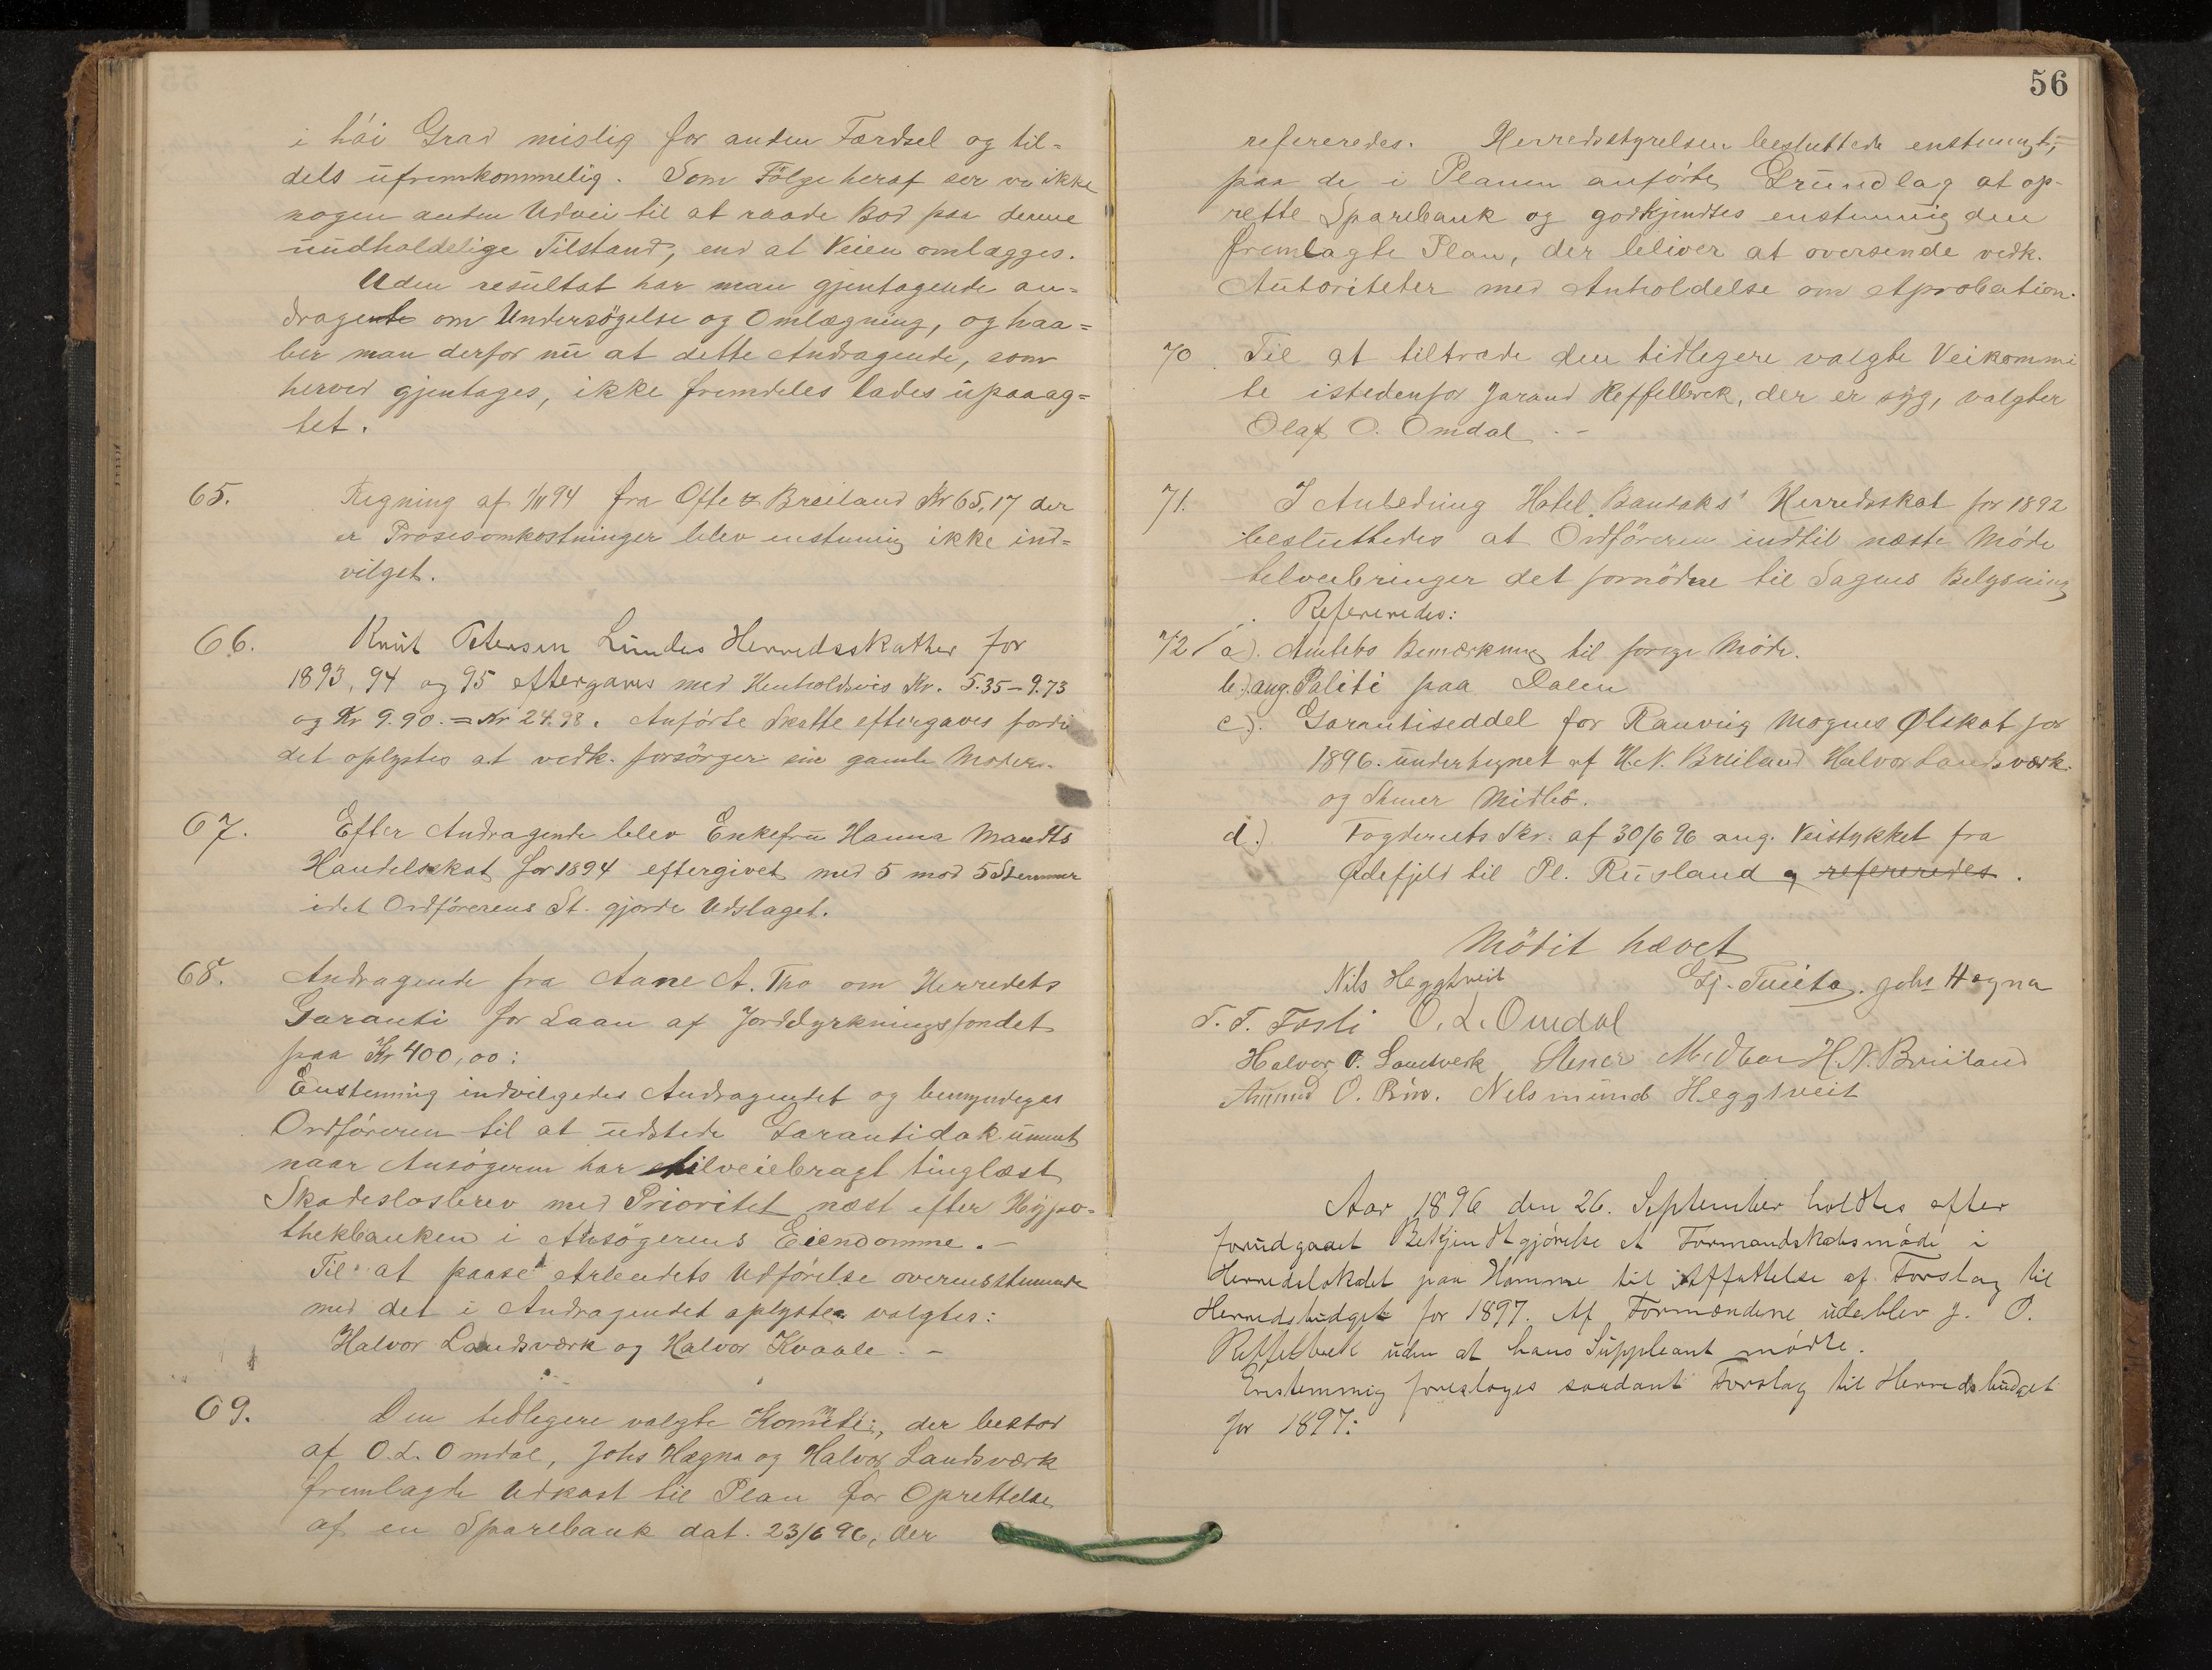 i høi Grad mislig for anden Færdsel og til=
dels ufremkommelig. Som Følge heraf ser vi ikke
nogen anden Udvei til at raade Bod paa denne
uudholdelige Tilstand, end at Veien omlægges.
Uden resultat har man gjentagende an=
dragende om Undersøgelse og Omlægning, og haa=
ber man derfor nu at dette Andragende, som
herved gjentages, ikke fremdeles lades upaaag=
tet.
65. Regning af 94 fra Ofte & Breiland Kr 65,17 der
er Prosesomkostninger blev enstemmig ikke ind=
vilget.
66. Knut Petersen Lundes Herredsskatter for
1893, 94 og 95 eftergaves med Henholdsvis Kr. 5.35 – 9.73
og Kr 9.90. = Kr 24.98. Anførte Skatte eftergaves fordi
det oplystes at vedk. forsørger sin gamle Moder.
67. Efter Andragende blev Enkefru Hanna Mandts
Handelsskat for 1894 eftergivet med 5 mod 5 Stemmer
idet Ordførerens St. gjorde Udslaget.
68. Andragende fra Aane A. Tho om Herredets
Garanti for Laan af Jorddyrkningsfondet
paa Kr 400,00:
Enstemmig indvilgedes Andragendet og bemyndiges
Ordføreren til at udstede Garantidokument
naar Ansøgeren har tilveiebragt tinglæst
Skadesløsbrev med Prioritet næst efter Hypo-
thekbanken i Ansøgerens Eiendomme. –
Til at paase Arbeidets Udførelse overensstemmende
med det i Andragendet oplyste valgtes:
Halvor Landsværk og Halvor Kvaale. –
69. Den tidligere valgte Komite, der bestod
af O. L. Omdal, Johs Hægna og Halvor Landsværk
fremlagde Udkast til Plan for Oprettelse
af en Sparebank dat. 23/6 96, der
56
refereredes. Herredsstyrelsen besluttede enstemmigt,
paa de i Planen anførte Grundlag at op-
rette Sparebank og godkjendtes enstemmig den
fremlagte Plan, der bliver at oversende vedk.
Autoriteter med Anholdelse om Aprobation.
70 Til at tiltræde den tidligere valgte Veikommi
te istedenfor Jarand Reffelbæk, der er syg, valgtes
Olaf O. Omdal. –
71. I Anledning Hotel Bandaks' Herredsskat for 1892
besluttedes at Ordføreren indtil næste Møde
tilveiebringer det fornødne til Sagens Belysning
Refereredes:
72 a). Amtets Bemærkning til forrige Møde.
b). ang. Politi paa Dalen
c). Garantiseddel for Ranveig Mognes Ølskat for
1896. undertegnet af H. N. Breiland Halvor Landsværk
og Stener Midbø.
d.) Fogderiets Skr. af 30/6 96 ang. Veistykket fra
Ødefjeld til Pl. Rusland og refereredes.
Mødet hævet
Nils Heggtveit Gj. Tveito. Johs Hægna
T. T. Fosli O. L. Omdal
Halvor O. Landverk Stener Midbøe H. N. Breiland
Amund O. Bøe. Nelsmund Heggtveit
Aar 1896 den 26. September holdtes efter
forudgaaet Bekjendtgjørelse et Formandskabsmøde i
Herredslokalet paa Homme til Affattelse af Forslag til
Herredsbudget for 1897. Af Formændene udeblev J. O.
Reffelbæk uden at hans Suppleant mødte.
Enstemmig foresloges saadant Forslag til Herredsbudget
for 1897: